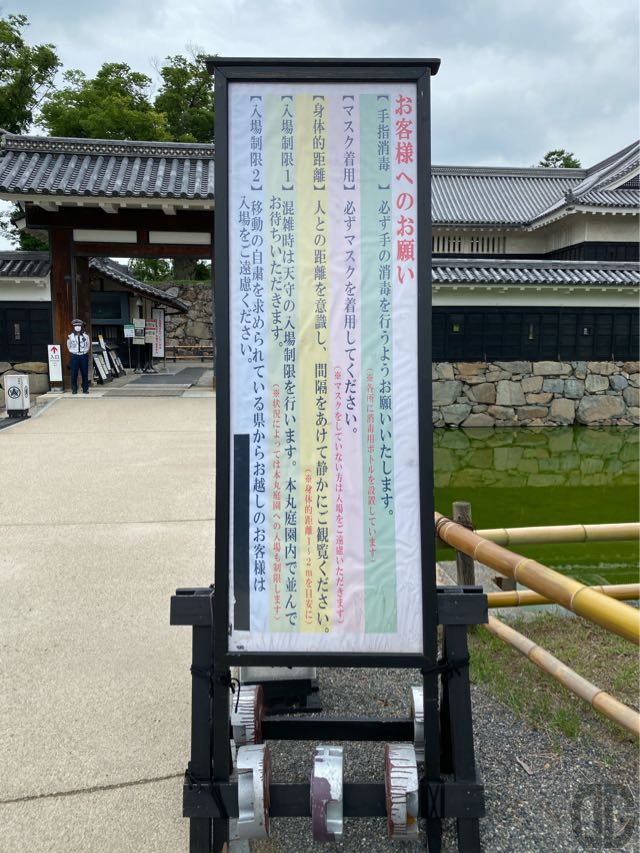 お客様へのお願い
【手指消毒】必ず手の消毒を行うようお願いいたします。
（※各所に消毒用ボトルを設置しています）
【マスク着用】必ずマスクを着用してください。
（※マスクをしていない方は入場をご遠慮いただきます）
【身体的距離】人との距離を意識し、間隔をあけて静かにご観覧ください。
（※身体的距離1～2mを目安に）
【入場制限1】混雑時は天守の入場制限を行います。本丸庭園内で並んで
お待ちいただきます。
（※状況によっては本丸庭園への入場も制限します）
【入場制限2】移動の自粛を求められている県からお越しのお客様は
入場をご遠慮ください。
入口